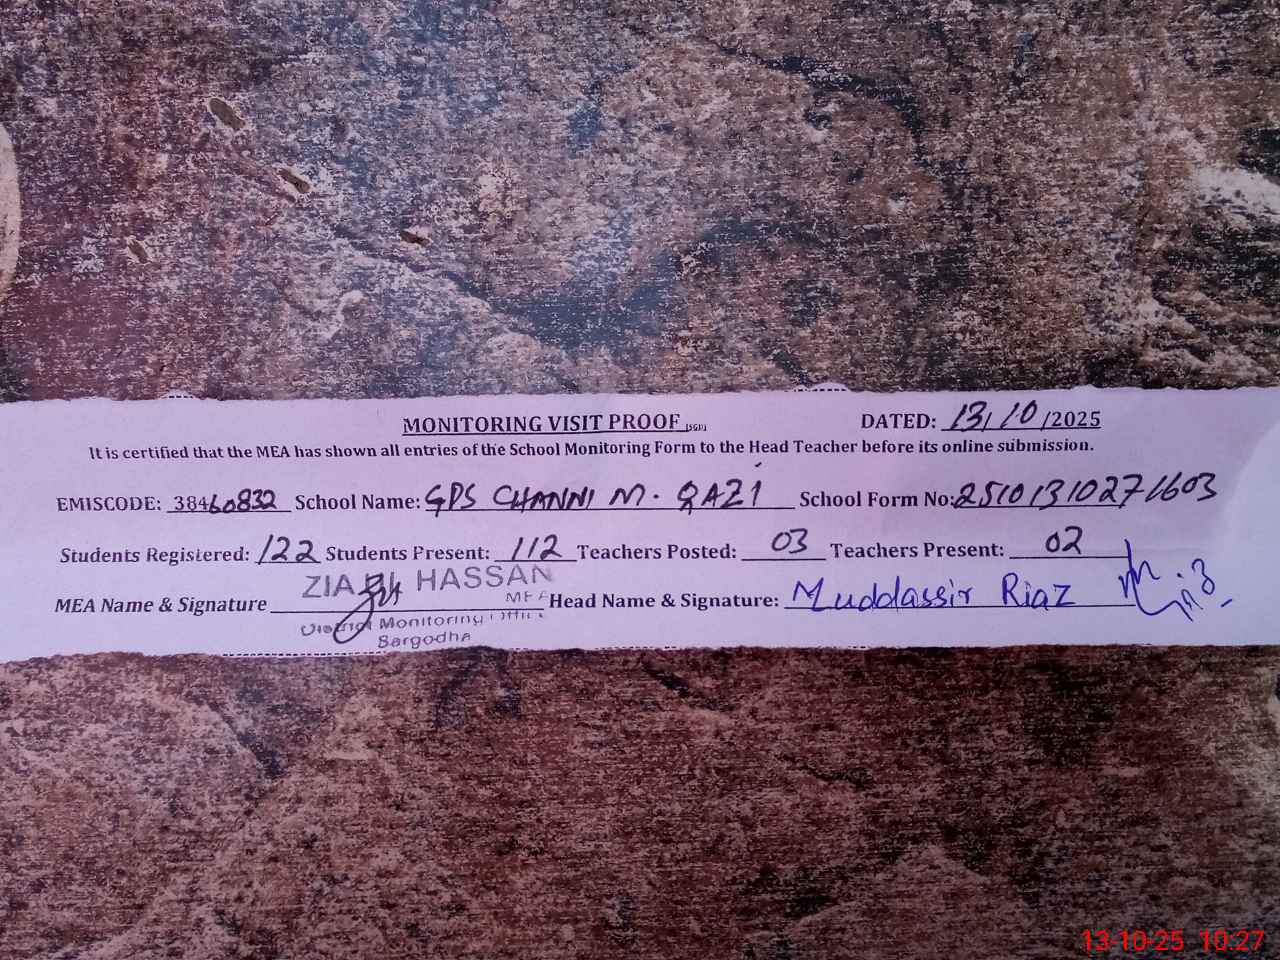 MONITORING VISIT PROOF (SGD) DATED: 13/10/2025
It is certified that the MEA has shown all entries of the School Monitoring Form to the Head Teacher before its online submission.
EMISCODE: 38460832 School Name: GPS CHANNI M. QAZI School Form No: 25101310271603
Students Registered: 122 Students Present: 112 Teachers Posted: 03 Teachers Present: 02
MEA Name & Signature ZIA HASSAN Head Name & Signature: Muddassir Riaz
MEA
District Monitoring Office
Sargodha
13-10-25 10:27